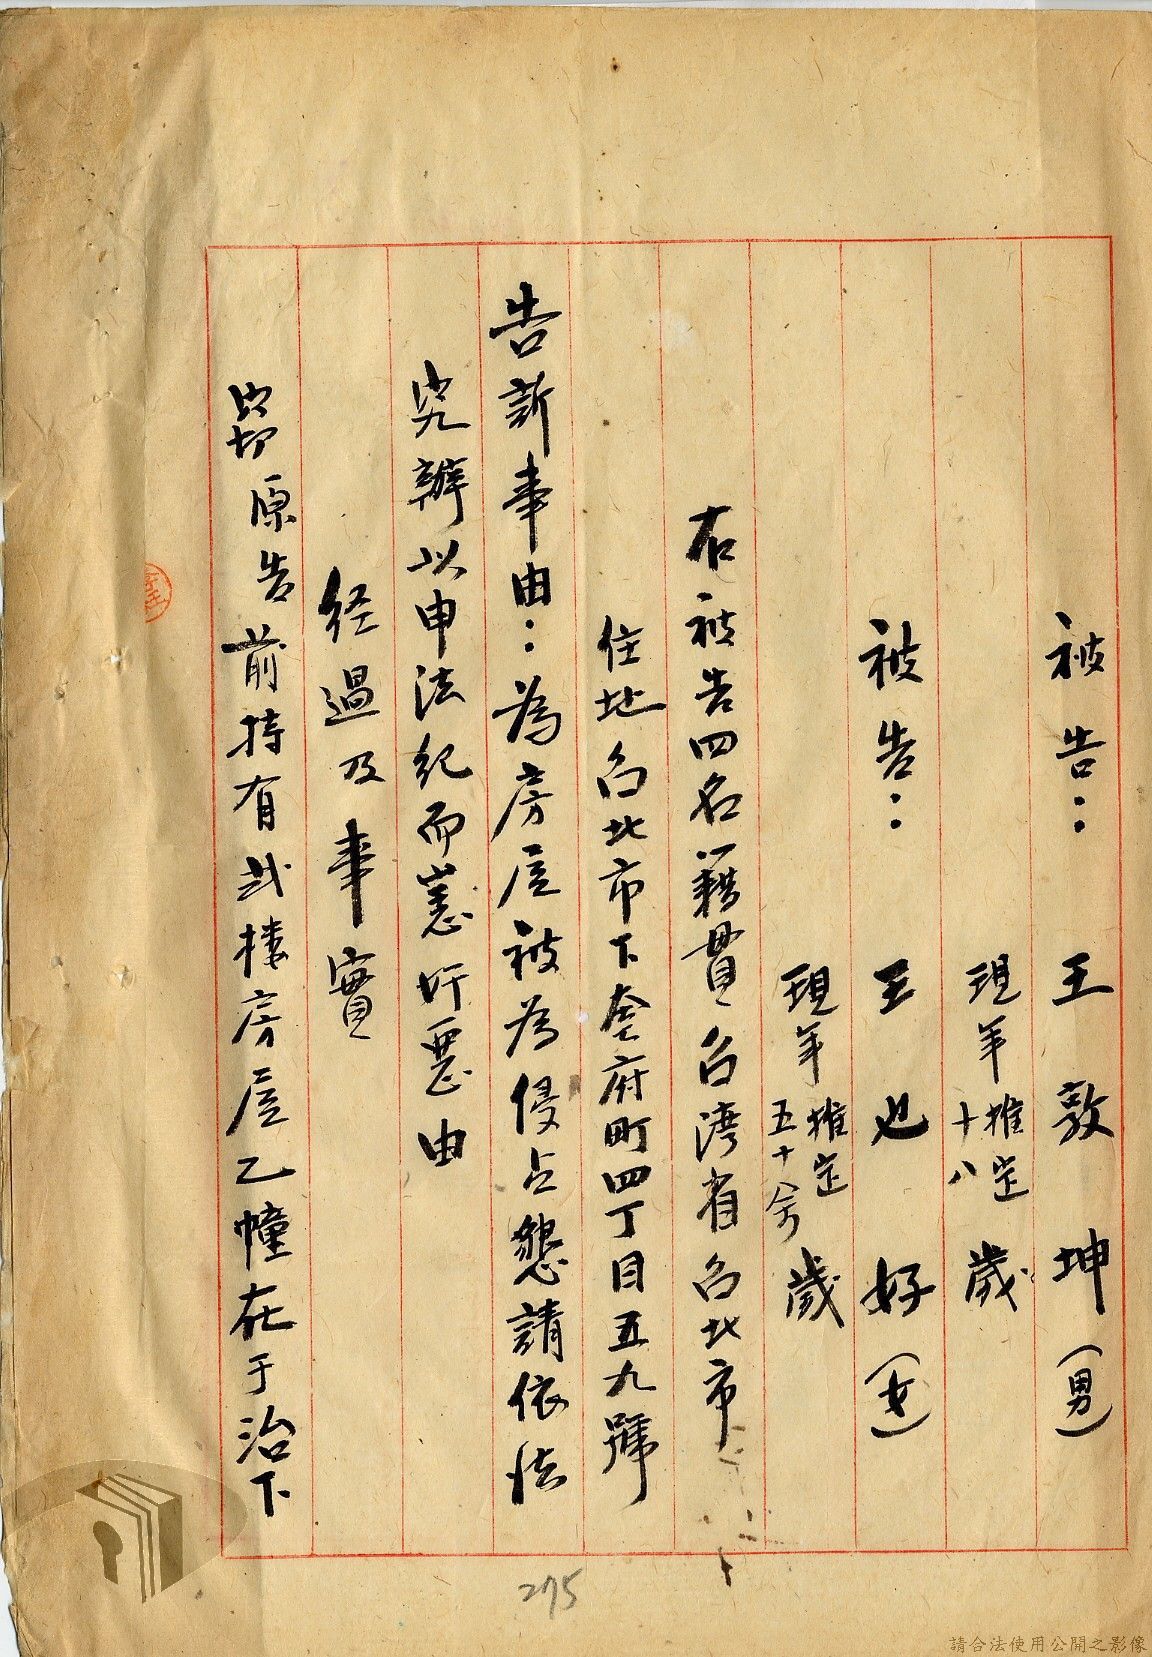 被告：王敦坤（男）
現年推定十八歲
被告：王也好（女）
現年推定五十余歲
右被告四名籍貫台湾省台北市
住地台北市下奎府町四丁目五九號
告訴事由：為房屋被為侵占懇請依法
究辦以申法紀而嵩奸惡由
経過及事實
緣原告前持有弍楼房屋乙幢在于治下
275
請合法使用公開之影像